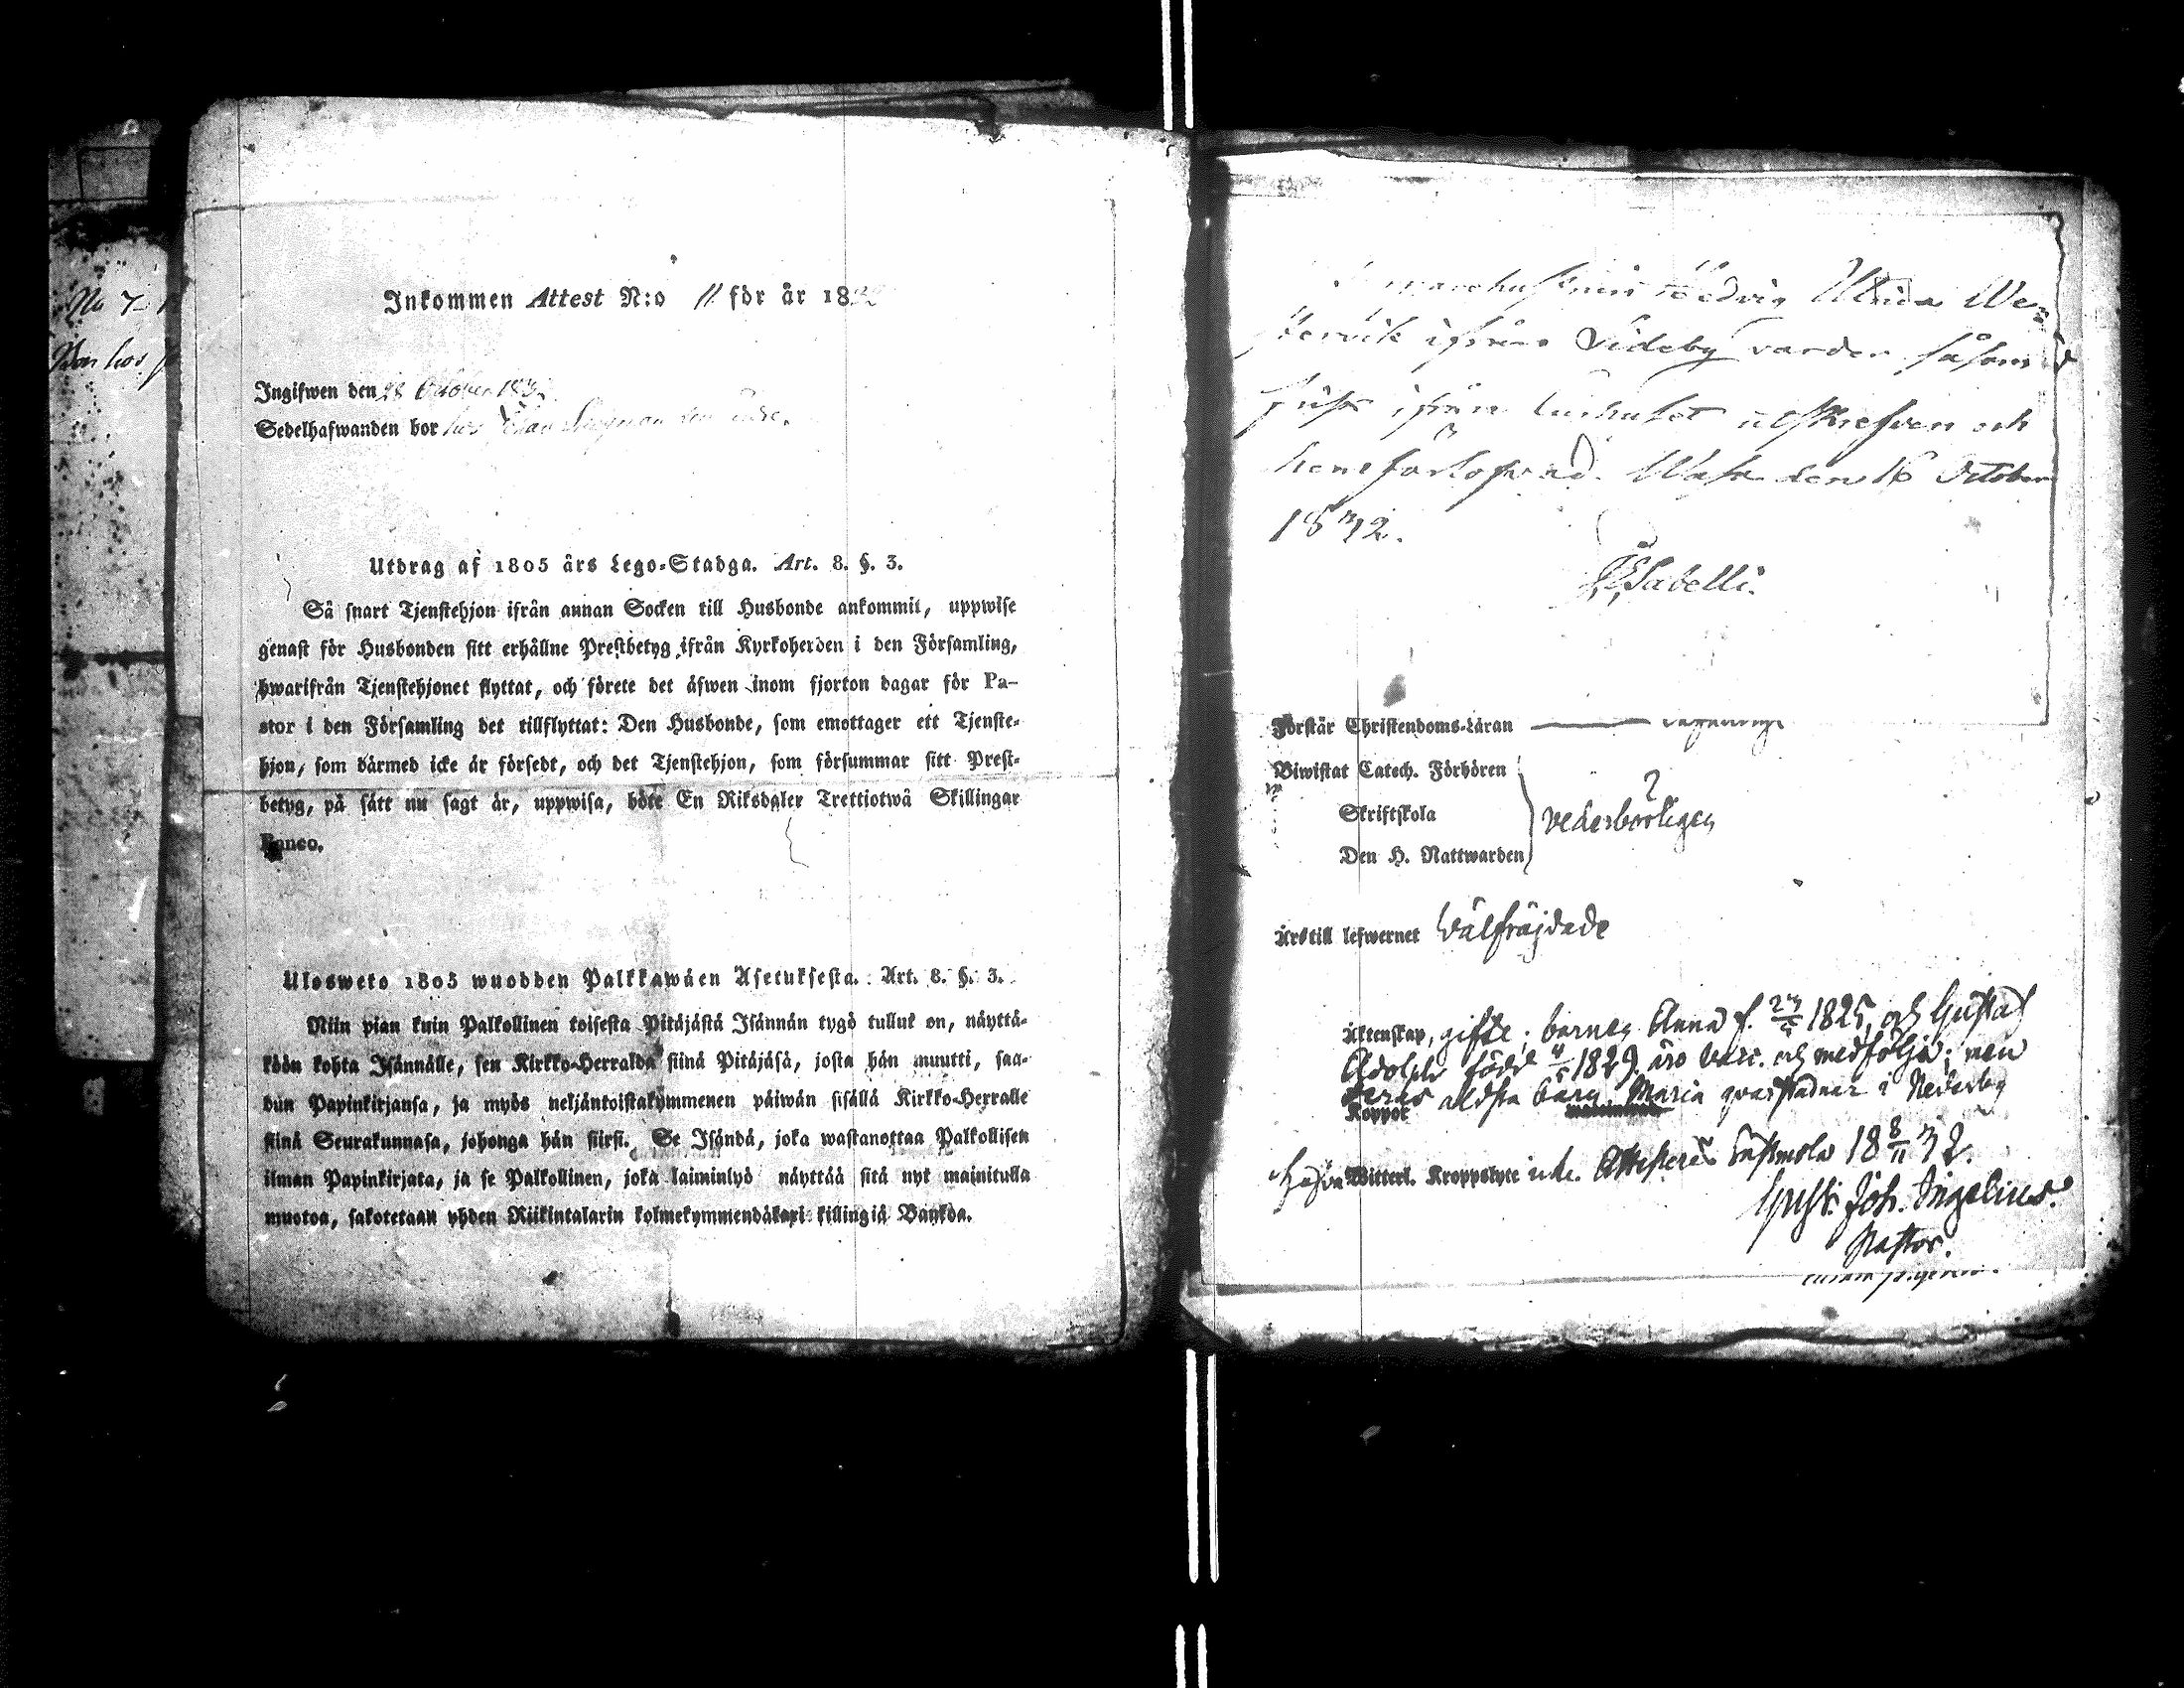 No 7
Inkommen Attest N:o 11 för år 1832
Ingifwen den 28 October 183
Sedelhafwanden bor hos
Utdrag af 1805 års Lego-Stadga. Art. 8. §. 3.
Så snart Tjenstehjon ifrån annan Socken till Husbonde ankommit, uppwise
genast för Husbonden sitt erhållne Prestbetyg ifrån Kyrkoherden i den Församling,
hwarifrån Tjenstehjonet flyttat, och förete det äfwen inom fjorton dagar för Pa-
stor i den Församling det tillflyttat: Den Husbonde, som emottager ett Tjenste-
hjon, som därmed icke är försedt, och det Tjenstehjon, som försummar sitt Prest-
betyg, på sätt nu sagt är, uppwisa, böte En Riksdaler Trettiotwå Skillingar
Banco.
Ulosweto 1805 wuodden Palkkawäen Asetuksesta. Art. 8. §. 3.
Niin pian kuin Palkollinen toisesta Pitäjästä Isännän tygö tullut on, näyttä-
köön kohta Isännälle, sen Kirkko-Herralda siinä Pitäjäsä, josta hän muutti, saa-
dun Papinkirjansa, ja myös neljäntoistakymmenen päiwän sisällä Kirkko-Herralle
siinä Seurakunnasa, johonga hän siirsi. Se Isändä, joka wastanottaa Palkollisen
ilman Papinkirjata, ja se Palkollinen, joka laiminlyö näyttää sitä nyt mainitulla
muotoa, sakotetaan yhden Riikintalarin kolmekymmendäkaxi killingiä Bankoa.
Hedvig Ulrica We-
stervik ifrån Sideby varder såsom
frisk ifrån Curhuset utskrefven och
hemförlofvad. Wasa den 16 October
1832.
Sabelli.
Förstår Christendoms-Läran
Biwistat Catech. Förhören
Skriftskola
vederbörligen
Den H. Nattwarden
Är till lefwernet Välfräjdade
Äktenskap, gifte; barnen Anna f. 1825, och Gustaf
Adolph född 1829 äro vacc. och medfölja; men
deras äldsta barn Maria qvarstadnar i Nederby
Koppor
Hafva Witterl. Kroppslyte icke. Attesterar Lastmola 18 8/11 32.
Gust. Joh. Ingelius.
Pastor.